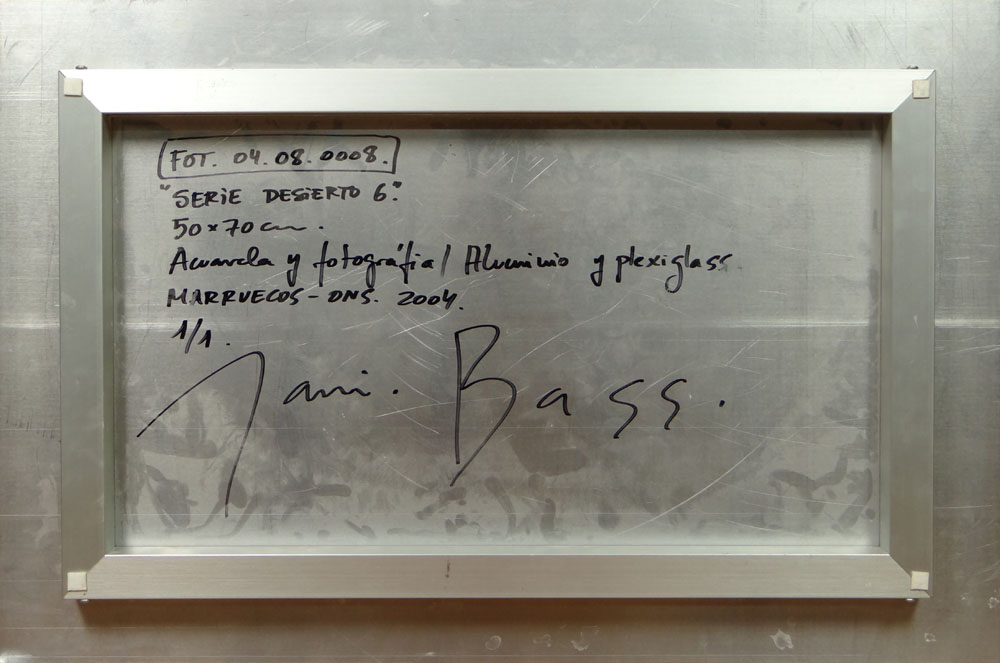 FOT. 04.08.0008.
"SERIE DESIERTO 6".
50x70 cm.
Acuarela y fotografía / Aluminio y plexiglass
MARRUECOS - DNS. 2004.
1/1.
Jani. Bass.